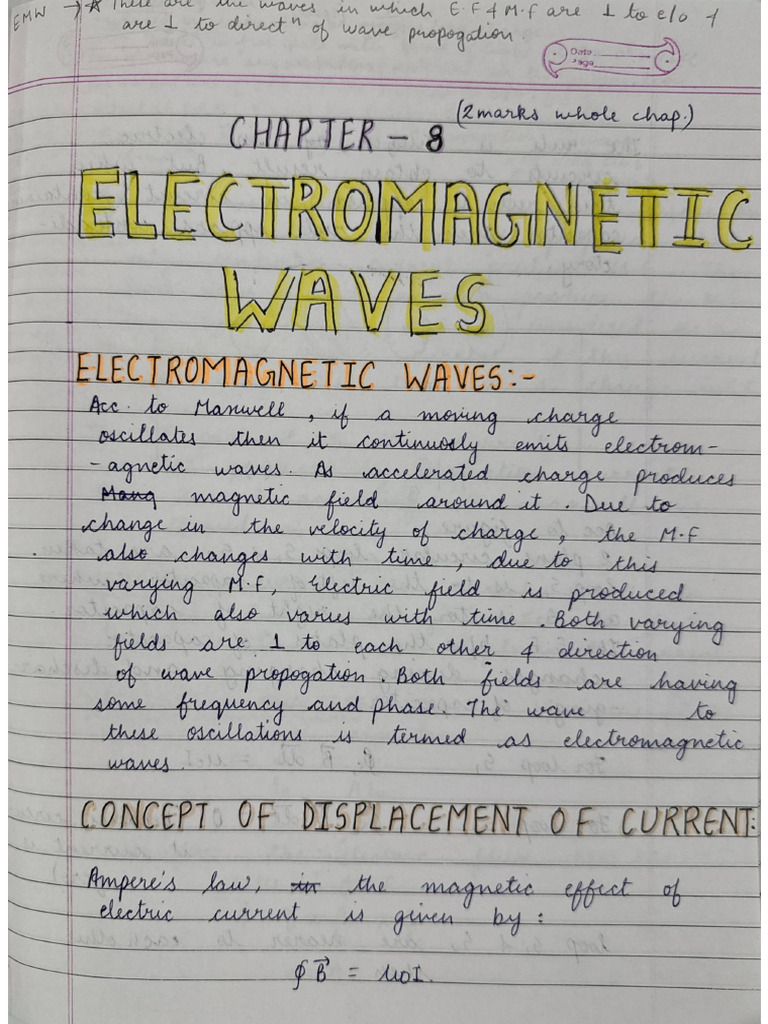 EMW → * These are the waves in which E.F & M.F are ⊥ to e/o &
are ⊥ to directⁿ of wave propogation.
Date
Page
(2 marks whole chap.)
CHAPTER - 8
ELECTROMAGNETIC
WAVES
ELECTROMAGNETIC WAVES:-
Acc. to Manwell, if a moving charge
oscillates then it continuosly emits electrom-
-agnetic waves. As accelerated charge produces
magnetic field around it. Due to
change in the velocity of charge, the M.F
also changes with time, due to this
varying M.F, Electric field is produced
which also varies with time. Both varying
fields are ⊥ to each other & direction
of wave propogation. Both fields are having
some frequency and phase. The wave to
these oscillations is termed as electromagnetic
waves.
CONCEPT OF DISPLACEMENT OF CURRENT:
Ampere's law, in the magnetic effect of
electric current is given by:
∮ B⃗ = μ0I.